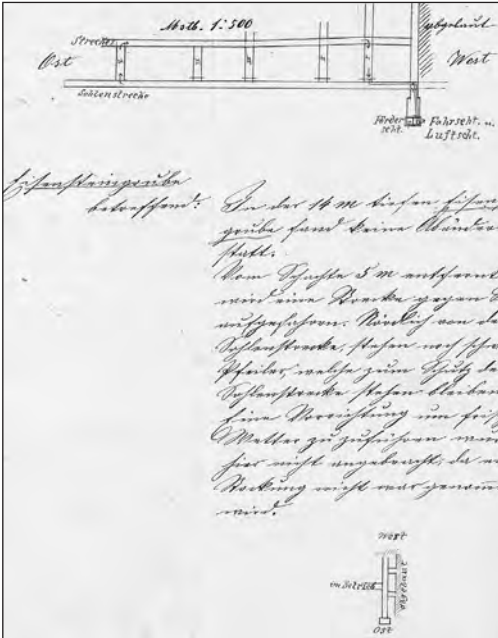 Mstb. 1:500
abgebaut
Strecke
Ost
West
Sohlenstrecke
Förder
scht.
Fahrscht. u.
Luftscht.
Eisensteingrube
betreffend:
In der 14 m tiefen Eisen
grube fand keine
statt.
Vom Schachte 5 m entfernt
wird eine Strecke gegen
aufgefahren. Nördlich von de
Sohlenstrecke, stehen noch
Pfeiler, welche zum Schutz de
Sohlenstrecke stehen bleiben
Eine Vorrichtung um fris
Wetter zu zuführen wur
hier nicht angebracht, da
Stockung nicht war genom
wird.
West
im Betrieb
abgebaut
Ost